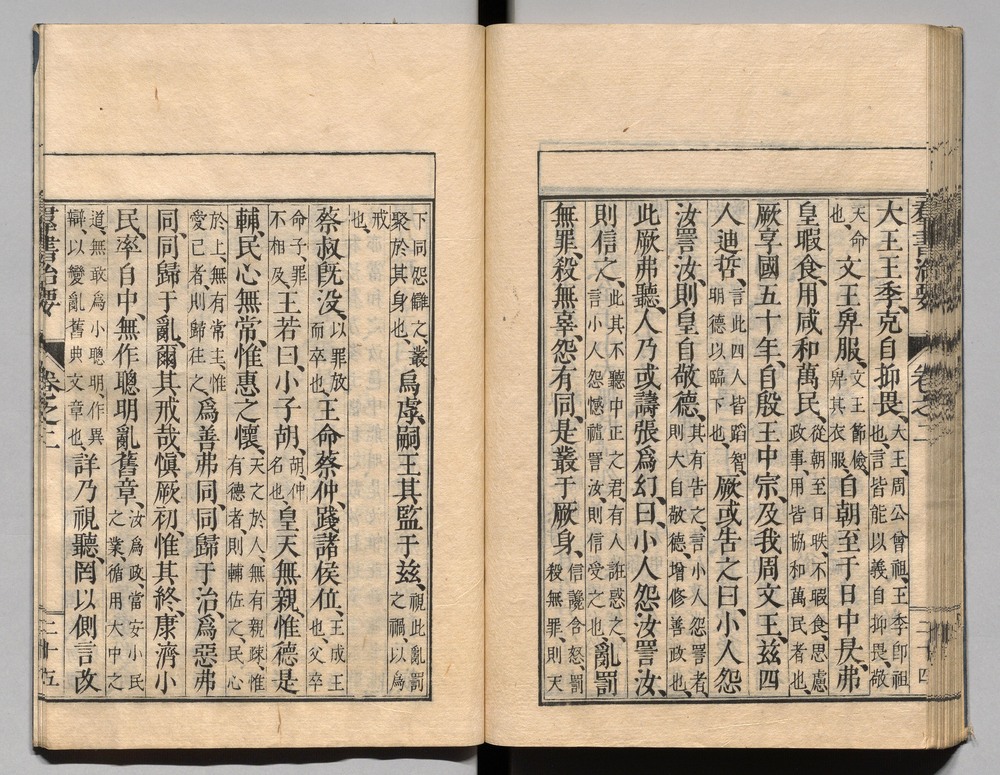 羣書治要 卷之二 二十四
大王王季、克自抑畏、大王、周公曾祖、王季即祖也、言皆能以義自抑畏、敬
天命也、文王卑服、文王節儉、卑其衣服、自朝至于日中昃、弗
皇暇食、用咸和萬民、從朝至日昳、不暇食、思慮政事、用皆協和萬民者也、
厥享國五十年、自殷王中宗、及我周文王、茲四
人迪哲、言此四人皆蹈智、明德以臨下也、厥或告之曰、小人怨
汝詈汝、則皇自敬德、其有告之、言小人怨詈者、則大自敬德、增修善政也、
此厥弗聽、人乃或譸張爲幻、曰、小人怨汝詈汝、
則信之、此其不聽中正之君、有人誑惑之、言小人怨憾、詛詈汝、則信受之也、亂罰
無罪、殺無辜、怨有同、是叢于厥身、信讒含怒、罰殺無罪、則天
下同怨讎之、叢聚於其身也、烏虖、嗣王其監于茲、視此亂罰之禍、以爲
戒也、
蔡叔既沒、以罪放而卒也、王命蔡仲、踐諸侯位、王成王也、父卒
命子、罪不相及、王若曰、小子胡、胡、仲名也、皇天無親、惟德是
輔、民心無常、惟惠之懷、天之於人、無有親疎、惟有德者、則輔佐之、民心
於上、無有常主、惟愛己者、則歸往之、爲善弗同、同歸于治、爲惡弗
同、同歸于亂、爾其戒哉、愼厥初、惟其終、康濟小
民、率自中、無作聰明、亂舊章、汝爲政、當安小民之業、循用大中之
道、無敢爲小聰明、作異辯、以變亂舊典文章也、詳乃視聽、罔以側言改
羣書治要 卷之二 二十五